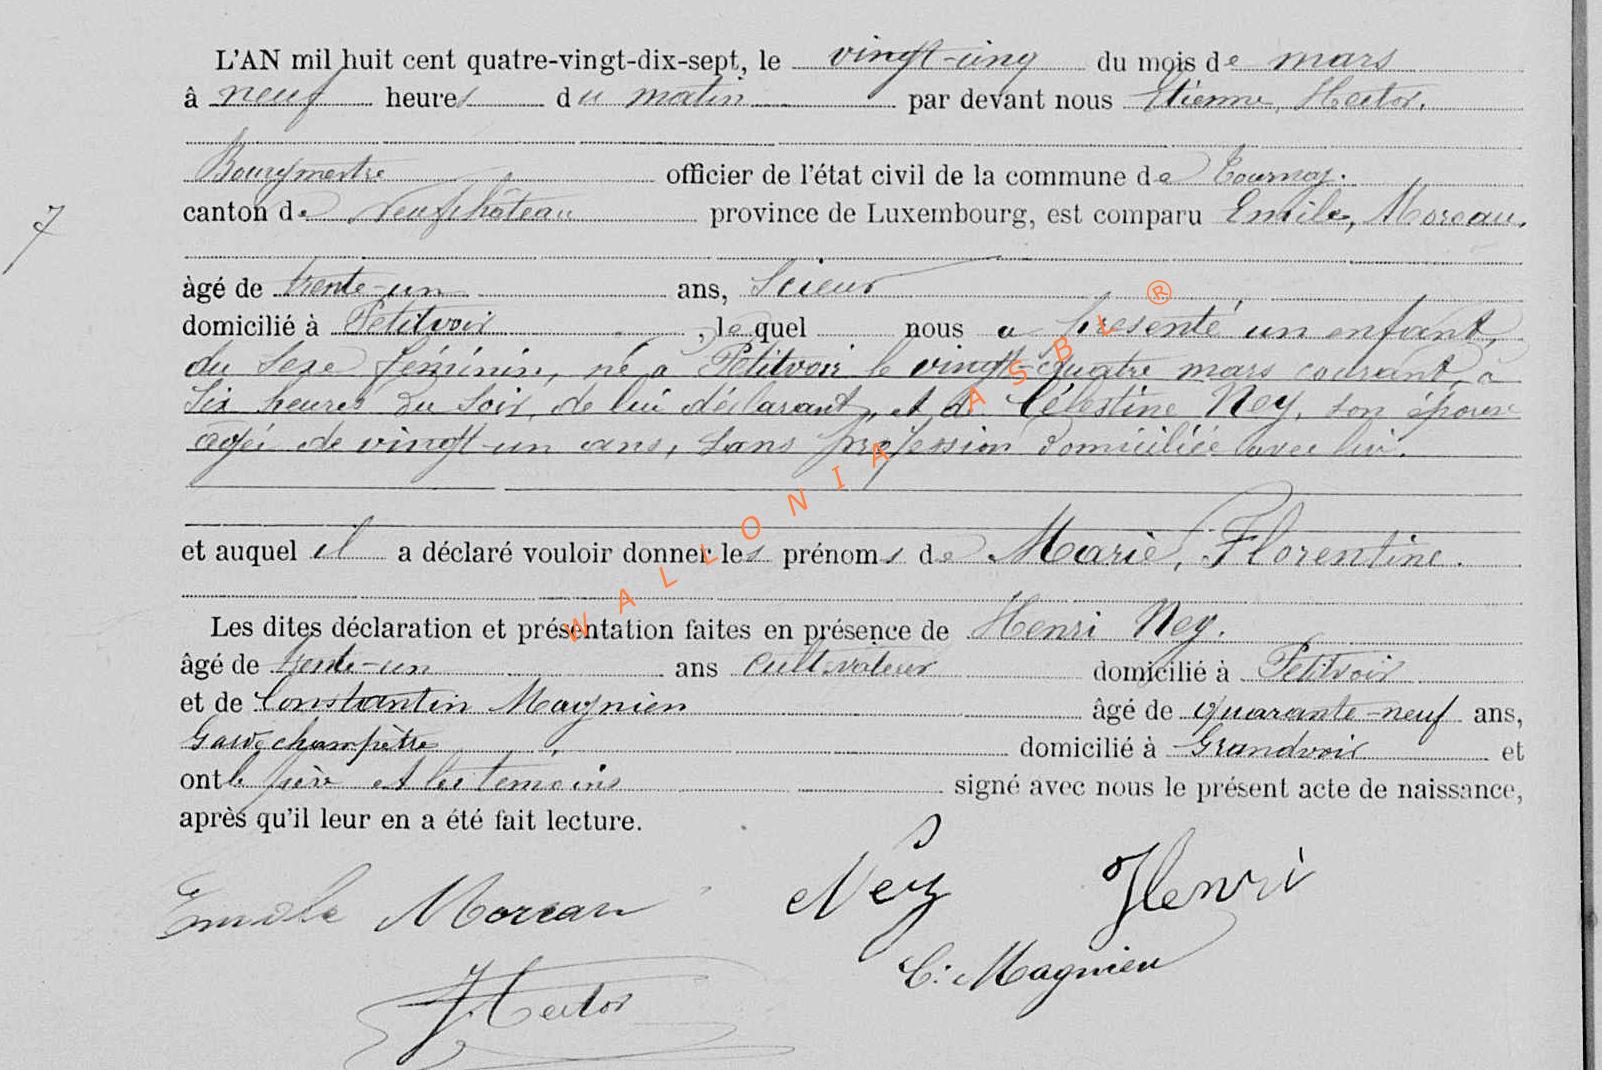 L'AN mil huit cent quatre-vingt-dix-sept, le vingt-cinq du mois de mars
à neuf heures du matin par devant nous Etienne, Hector.
Bourgmestre officier de l'état civil de la commune de Tournay.
canton de Neufchâteau province de Luxembourg, est comparu Emile, Moreau,
7
âgé de trente-un ans, Scieur
domicilié à Petitvoir, lequel nous a présenté un enfant,
du sexe féminin, né à Petitvoir le vingt-quatre mars courant, à
six heures du soir, de lui déclarant, et de Célestine Ney, son épouse
agée de vingt-un ans, sans profession domiciliée avec lui.
et auquel il a déclaré vouloir donner les prénoms de Marie, Florentine.
Les dites déclaration et présentation faites en présence de Henri Ney.
âgé de trente-un ans cultivateur domicilié à Petitvoir
et de Constantin Magnien âgé de quarante-neuf ans,
Garde champêtre domicilié à Grandvoir et
ont le père et les témoins signé avec nous le présent acte de naissance,
après qu'il leur en a été fait lecture.
Emile Moreau Ney Henri
C. Magnien
Hector
WALLONIA ASBL ®